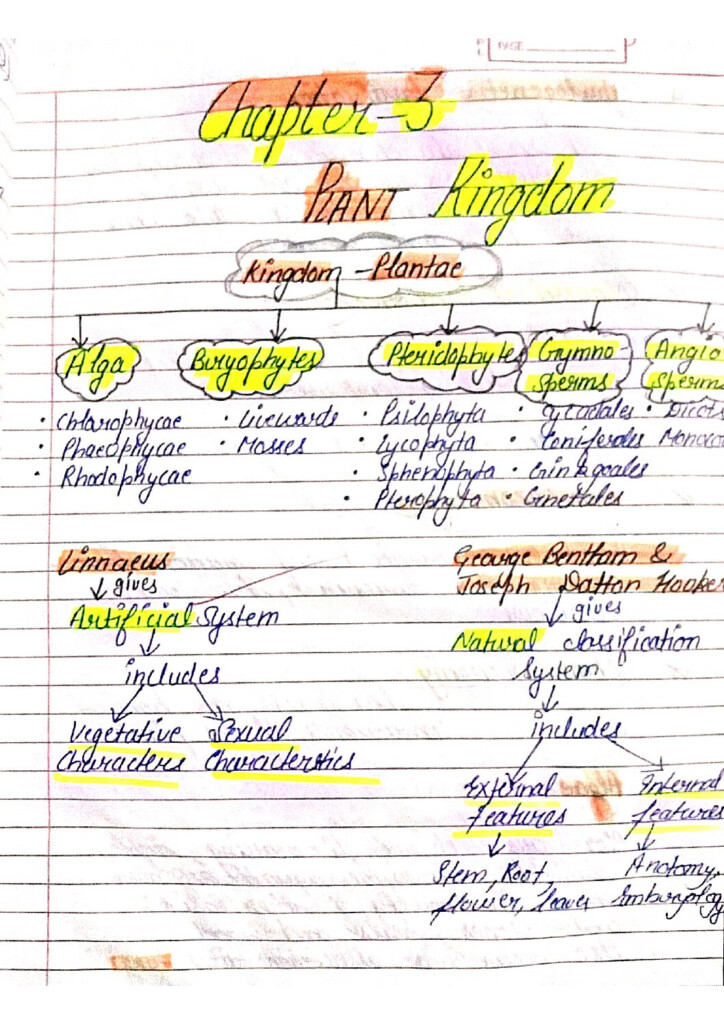 PAGE
Chapter-3
PLANT Kingdom
Kingdom - Plantae
Alga
Bryophytes
Pteridophytes
Gymno-
sperms
Angio
sperms
• Chlorophycae
• Phaeophycae
• Rhodophycae
• Liverwards
• Mosses
• Psilophyta
• Lycophyta
• Sphenophyta
• Pterophyta
• Cycadales
• Coniferales
• Ginkgoales
• Gnetales
• Dicots
Linnaeus
gives
Artificial System
includes
Vegetative Sexual
Characters Characteristics
George Bentham &
Joseph Dalton Hooker
gives
Natural classification
System
includes
External
features
Internal
features
Stem, Root,
flower, leaves
Anatomy,
Embryology